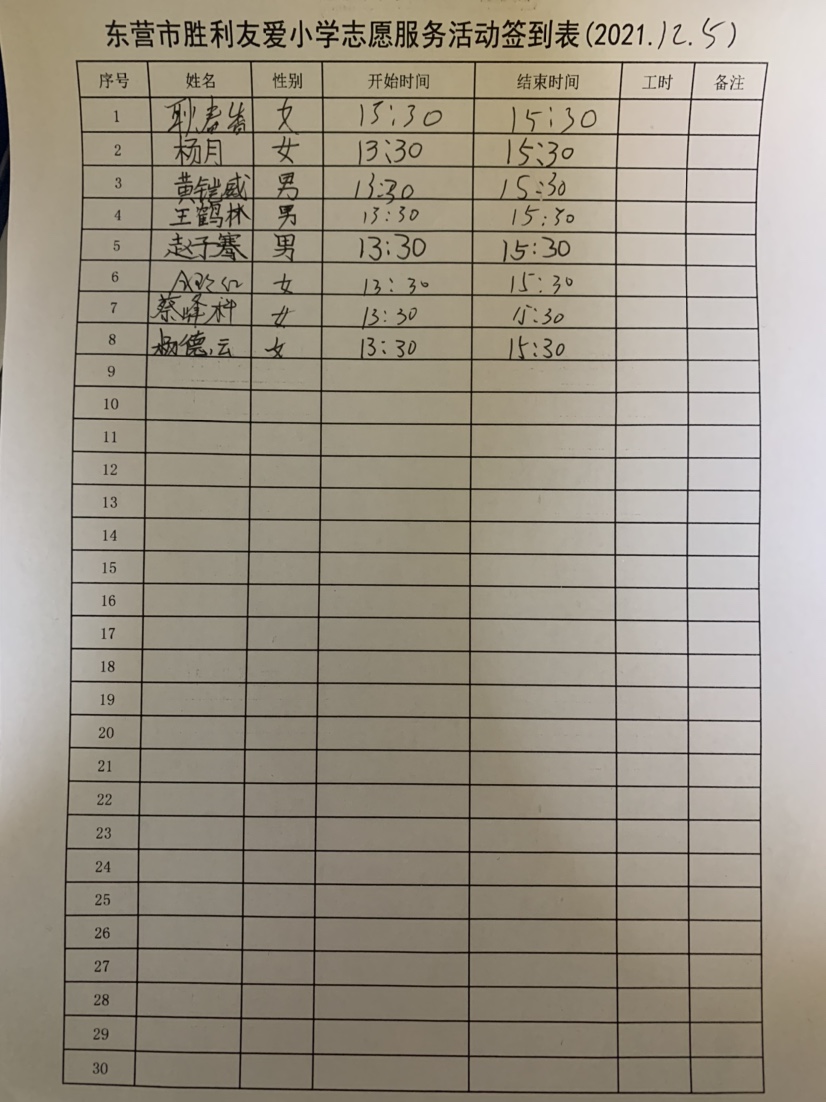 东营市胜利友爱小学志愿服务活动签到表(2021.12.5)
序号 姓名 性别 开始时间 结束时间 工时 备注
1 女 13:30 15:30
2 杨月 女 13:30 15:30
3 黄铠威 男 13:30 15:30
4 王鹤林 男 13:30 15:30
5 赵子骞 男 13:30 15:30
6 女 13:30 15:30
7 女 13:30 15:30
8 杨德云 女 13:30 15:30
9
10
11
12
13
14
15
16
17
18
19
20
21
22
23
24
25
26
27
28
29
30